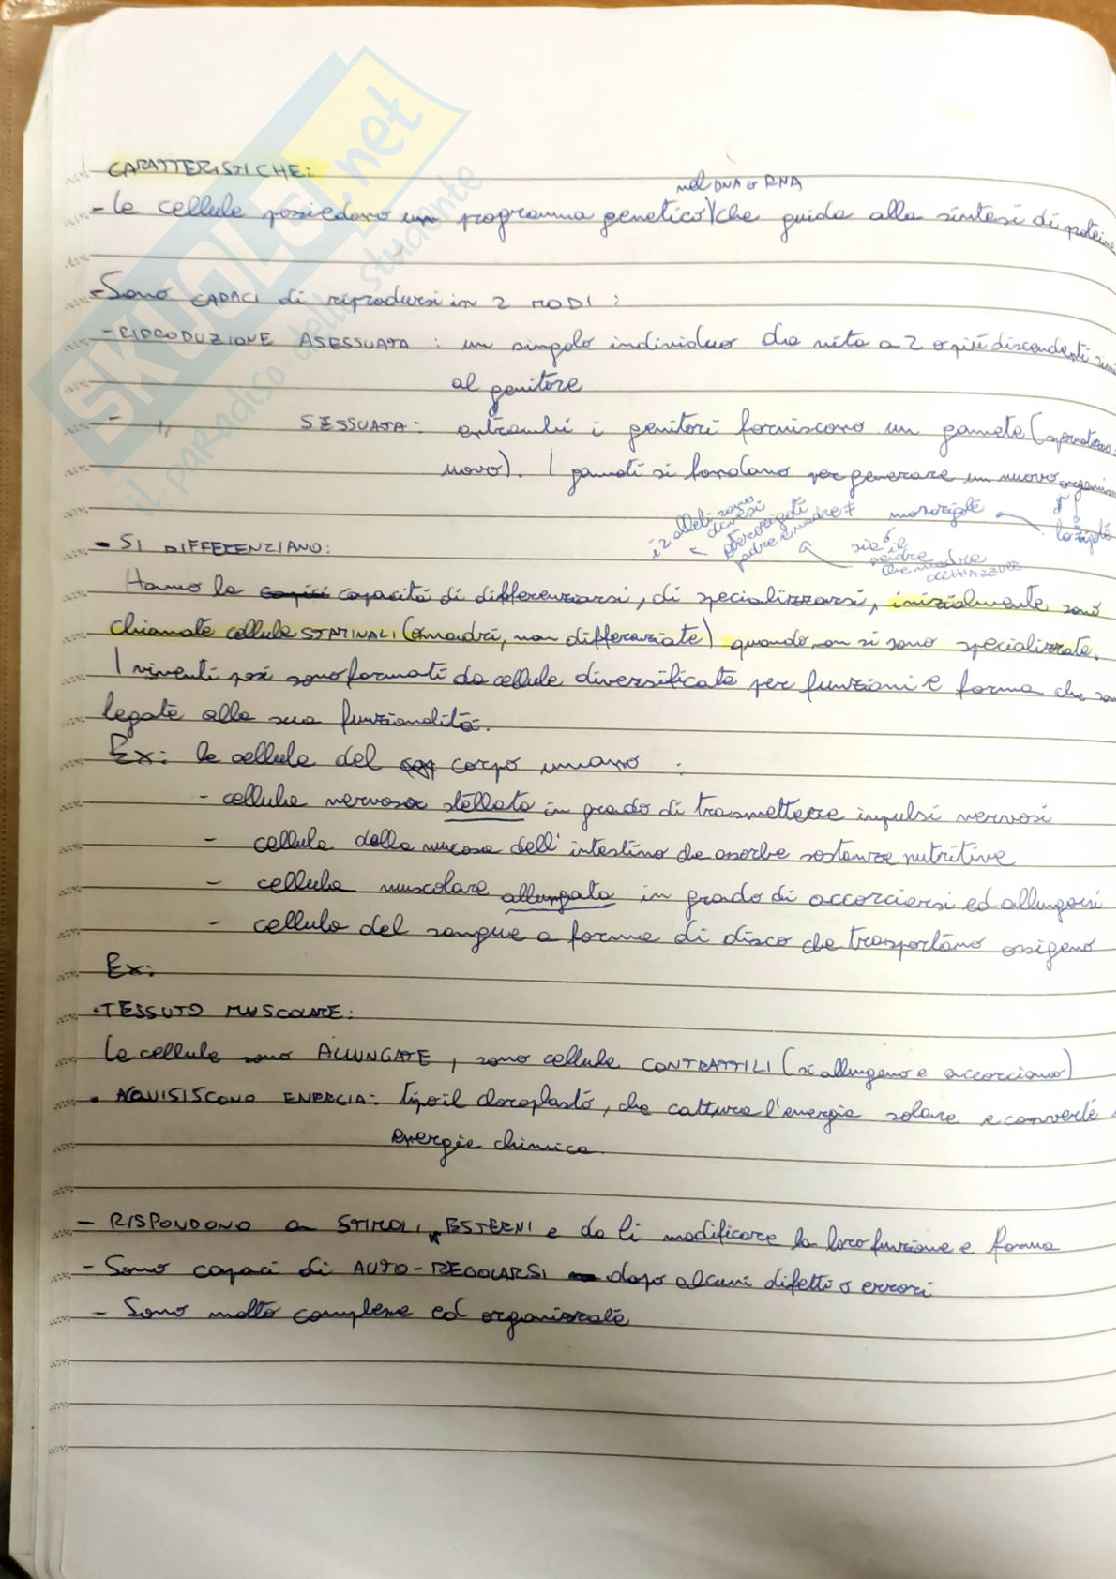 CARATTERISTICHE:
nel DNA o RNA
- Le cellule possiedono un programma genetico che guida alla sintesi di
- Sono CAPACI di riprodursi in 2 MODI:
- RIPRODUZIONE ASESSUATA: un singolo individuo da vita a 2 o più discendenti
al genitore
- " SESSUATA: entrambi i genitori forniscono un gamete
uovo). I gameti si fondono per generare un nuovo
i 2 alleli sono diversi
eterozigoti
monozigote
lo zigote
- SI DIFFERENZIANO:
Hanno la capacità di differenziarsi, di specializzarsi, inizialmente sono
chiamate cellule STAMINALI (o madri, non differenziate) quando non si sono specializzate.
I viventi poi sono formati da cellule diversificate per funzioni e forma che
legate alla sua funzionalità.
Ex: le cellule del corpo umano:
- cellula nervosa stellata in grado di trasmettere impulsi nervosi
- cellula della mucosa dell'intestino che assorbe sostanze nutritive
- cellula muscolare allungata in grado di accorciarsi ed allungarsi
- cellula del sangue a forma di disco che trasportano ossigeno
Ex:
• TESSUTO MUSCOLARE:
Le cellule sono ALLUNGATE, sono cellule CONTRATTILI (si allungano e accorciano)
• AQUISISCONO ENERGIA: tipo il cloroplasto, che cattura l'energia solare e converte
energia chimica.
- RISPONDONO a STIMOLI ESTERNI e da li modificare la loro funzione e forma
- Sono capaci di AUTO-REGOLARSI dopo alcuni difetti o errori
- Sono molto complesse ed organizzate
SKUOLA.net
il paradiso dello studente